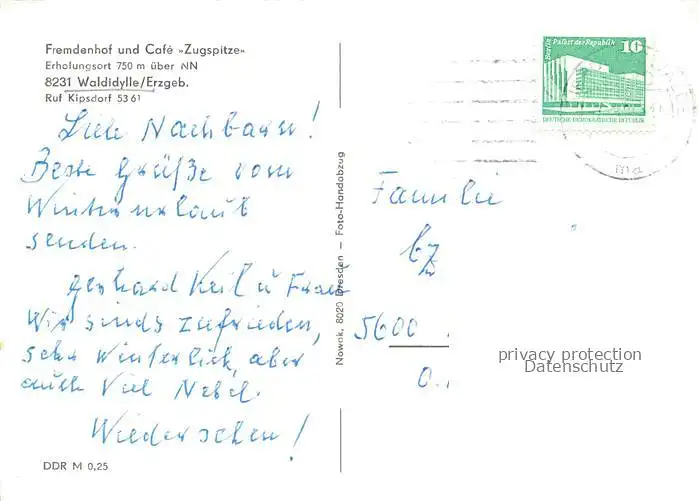 Fremdenhof und Café »Zugspitze«
Erholungsort 750 m über NN
8231 Waldidylle/Erzgeb.
Ruf Kipsdorf 5361
Liebe Nachbarn!
Beste Grüße vom
Winterurlaub
senden.
Gerhard Keil u Frau
Wir sinds zufrieden,
sehr winterlich, aber
auch viel Nebel.
Wiedersehen!
DDR M 0,25
Nowak, 8020 Dresden – Foto-Handabzug
Berlin Palast der Republik 10
DEUTSCHE DEMOKRATISCHE REPUBLIK
Familie
5600
privacy protection
Datenschutz